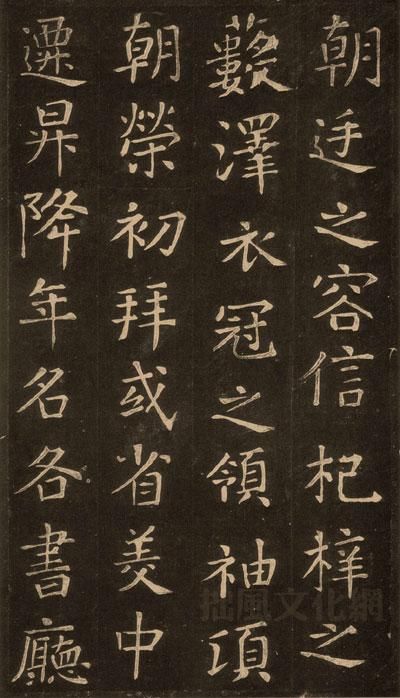 朝廷之容信杞梓之
藪澤衣冠之領袖頃
朝榮初拜或省美中
遷昇降年名各書廳
拙風文化網